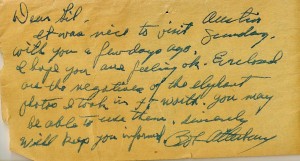 Dear Sid. Austin
It was nice to visit Sunday.
with you a few days ago.
I hope you are feeling ok. Enclosed
are the negatives of the elephant
photos I took in Ft worth. you may
be able to use them. sincerely
Will keep you informed. Bob